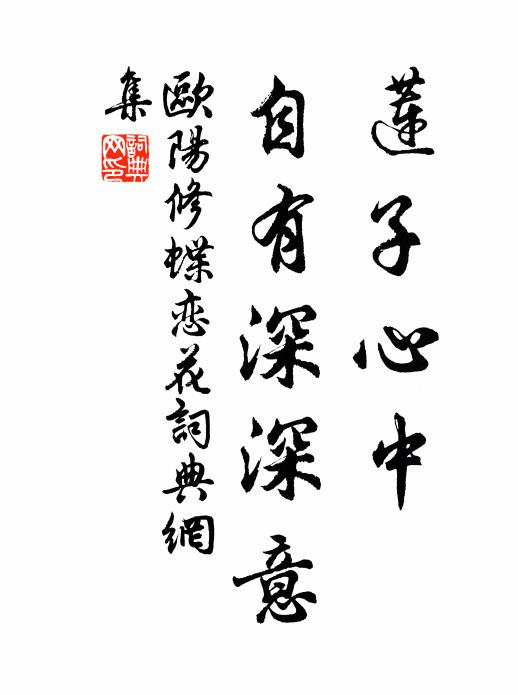 蓮子心中
自有深深意
歐陽修蝶恋花詞典網
集
詞典
网印